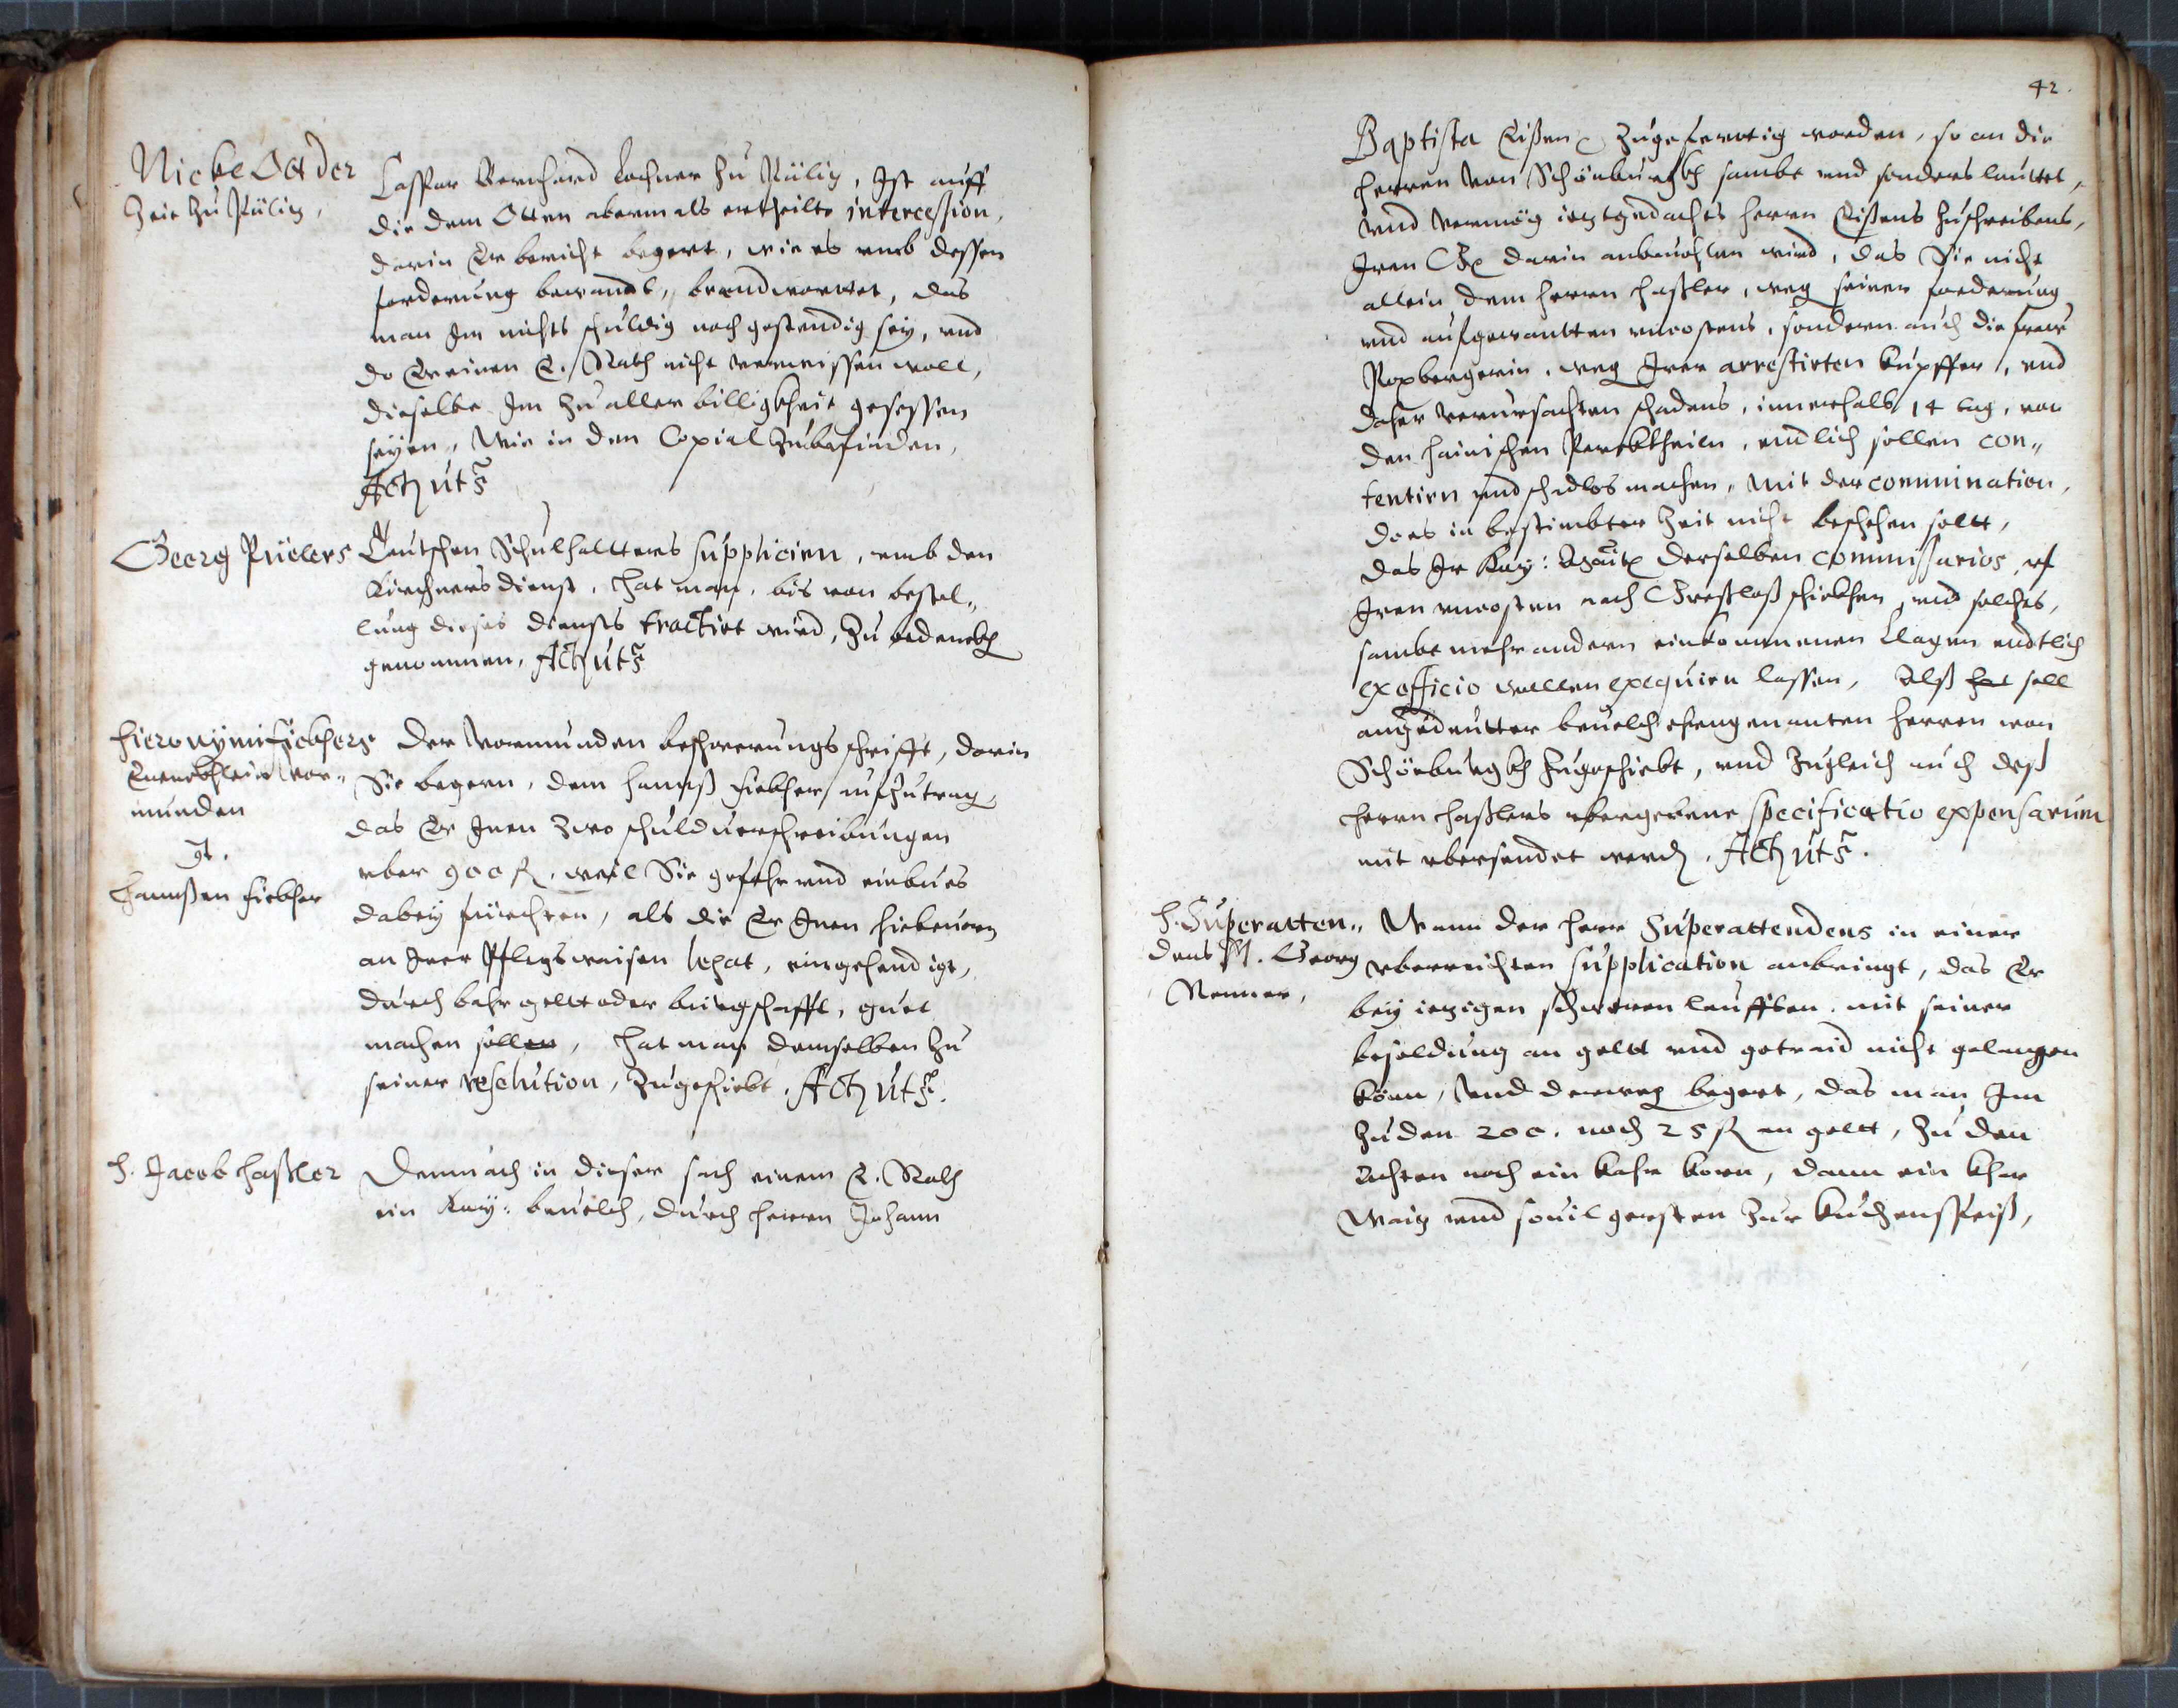 Nickel Ott der
Zeit zu Külitz,
Caspar Bernhard Lochner zu Külitz, Ist auff
die dem Otten abermals ertheilte intercession,
darin Er bericht begert, wie es vmb dessen
forderung bewandt, beandwortet, das
man Im nichts schuldig noch gestendig sey, vnd
do Er einen E. Rath nicht
dieselbe Im zu aller billigkheit gesessen
seyen, Wie in den Copial zubefinden,
Actum ut s.
Georg Püelers
Teutschen Schulhaltters suppliciren, vmb den
Kirchners dienst, hat man, bis von bestel„
lung dieses diensts tractirt wird, zu gedenckh
genommen, Actum ut s.
Hieronymi Fickhers
Enencklein Vor„
munden
gt.
Hannßen Fickher
Der Vormunden beschwerungsschrifft, darin
Sie begern, dem Hannß Fickher aufzutrag
das Er Inen zwo schuldverschreibungen
vber 900 fl. weil Sie gefahr vnd einbues
dabey fürchten, als die Er Inen hiebeuorn
an Irer Pflegswaisen legat, eingehendigt,
durch bahr geltt oder bürgschafft, guet
machen sollen, hat man demselben zu
seiner resolution, zugeschickt. Actum ut s.
H. Jacob Haßler
Demnach in dieser sach einem E. Rath
ein Kay: beuelch, durch Herrn Johann
42.
Baptista Eißen zugefertig worden, so an die
Herren Von Schönburgkh sambt vnd sonders lauttet,
vnd vermög ietztgedachts Herrn Eißens zuschreibens,
Iren darin anbeuohlen wird, das Sie nicht
allein dem Herrn Haßler, weg seiner forderung
vnd aufgewantten vncostens, sondern auch die Fraw
Roxbergerin, weg Irer arrestirten Kupffer, vnd
daher verursachten schadens, innerhalb 14 tag, von
den Hainischen Perckhtheiln, endlich sollen con„
tentirn vnd schadlos machen, mit der commination,
do es in bestimbter Zeit nicht beschehen soltt,
das Ir Kay: Maitt derselben commissarios, vf
Iren vncosten nach Greßlaß schickhen, vnd solches,
sambt mehr andern einkommenen Clagen endtlich
ex officio wellen exequirn lassen, Alß hat soll
angedeutter beuelch ehengenanten Herren von
Schönburgkh zugeschickt, vnd zugleich auch deß
Herrn Haßlers vbergebene specificatio expensarum
mit vbersendet werden. Actum ut s.
H. Superatten„
dens M. Georg
Renner,
Wann der Herr Superattendens in einer
vberreichten supplication anbringt, das Er
bey ietzigen schweren leufften mit seiner
besoldung an geltt vnd getraid nicht gelangen
könn, Vnd derweg begert, das man Im
zu den 200. noch 25 fl. an geltt, zu den
Achten noch ein Kahr Korn, dann ein Khar
Waitz vnd souil gersten zur Kuchenspeiß,